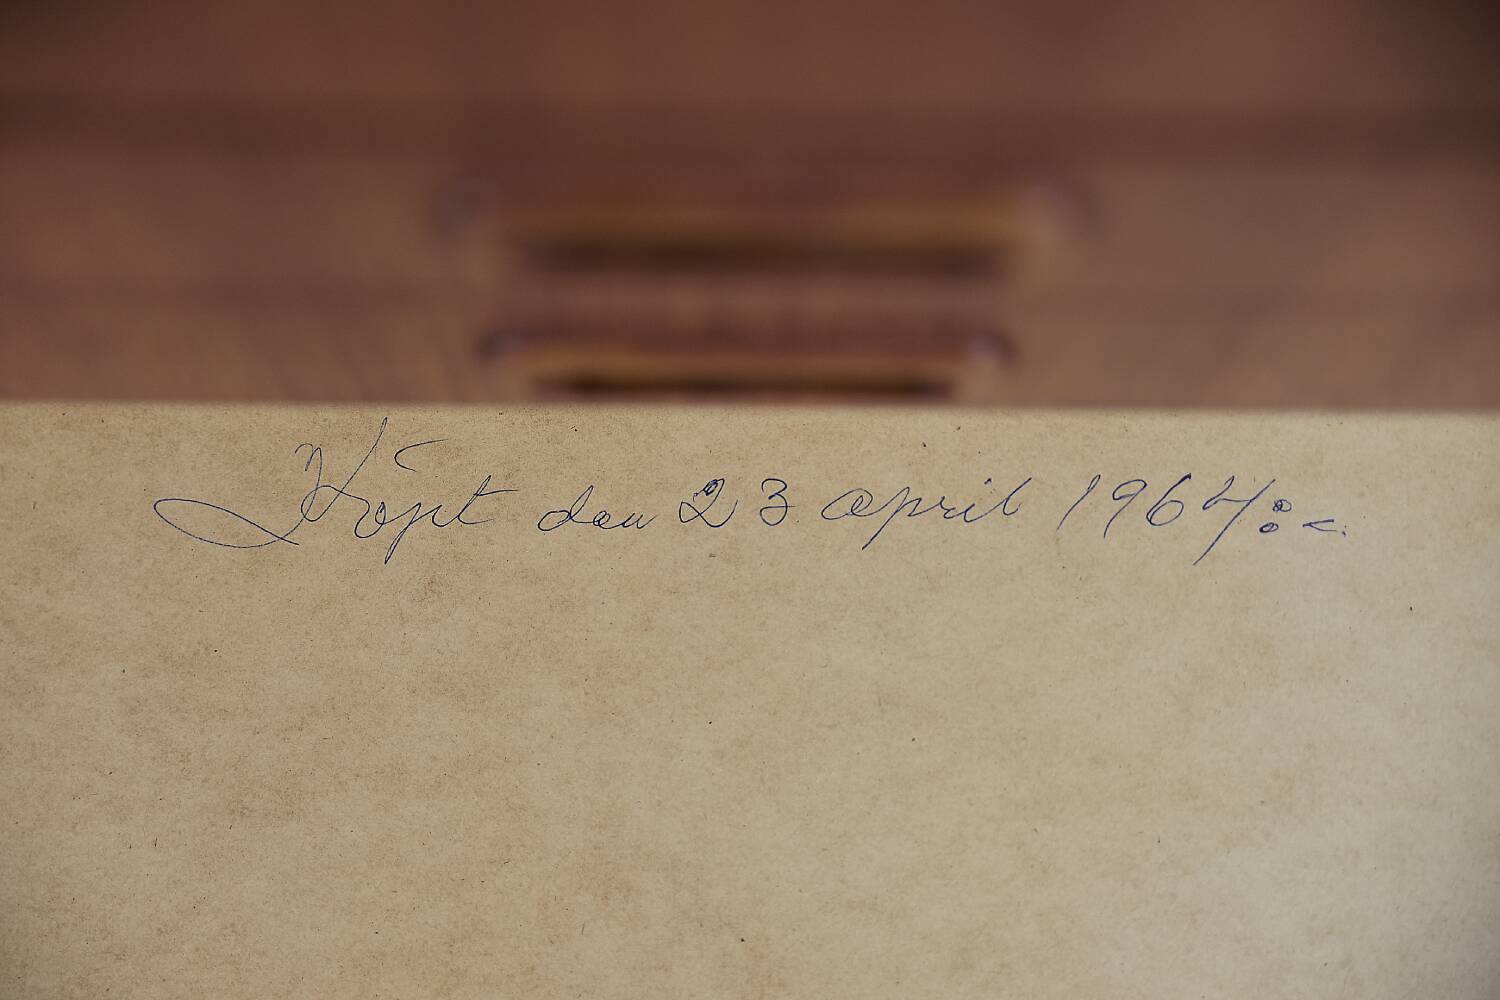 Köpt den 23 april 1964:-.